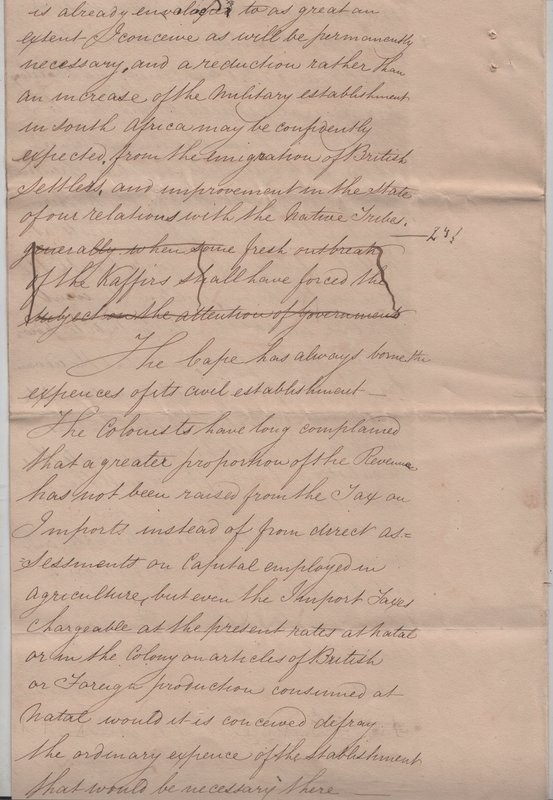 is already enveloped to as great an
extent I conceive as will be permanently
necessary, and a reduction rather than
an increase of the Military establishment
in South Africa may be confidently
expected from the Emigration of British
Settlers, and improvement in the state
of our relations with the Native Tribes.
generally when some fresh outbreak
of the Kaffirs shall have forced the
subject on the attention of Government
The Cape has always borne the
expences of its civil establishment —
The Colonists have long complained
that a greater proportion of the Revenue
has not been raised from the Tax on
Imports instead of from direct as=
=sessments on Capital employed in
agriculture, but even the Import Taxes
chargeable at the present rates at Natal
or in the Colony on articles of British
or Foreign production consumed at
Natal would it is conceived defray
the ordinary expence of the Establishment
that would be necessary there —